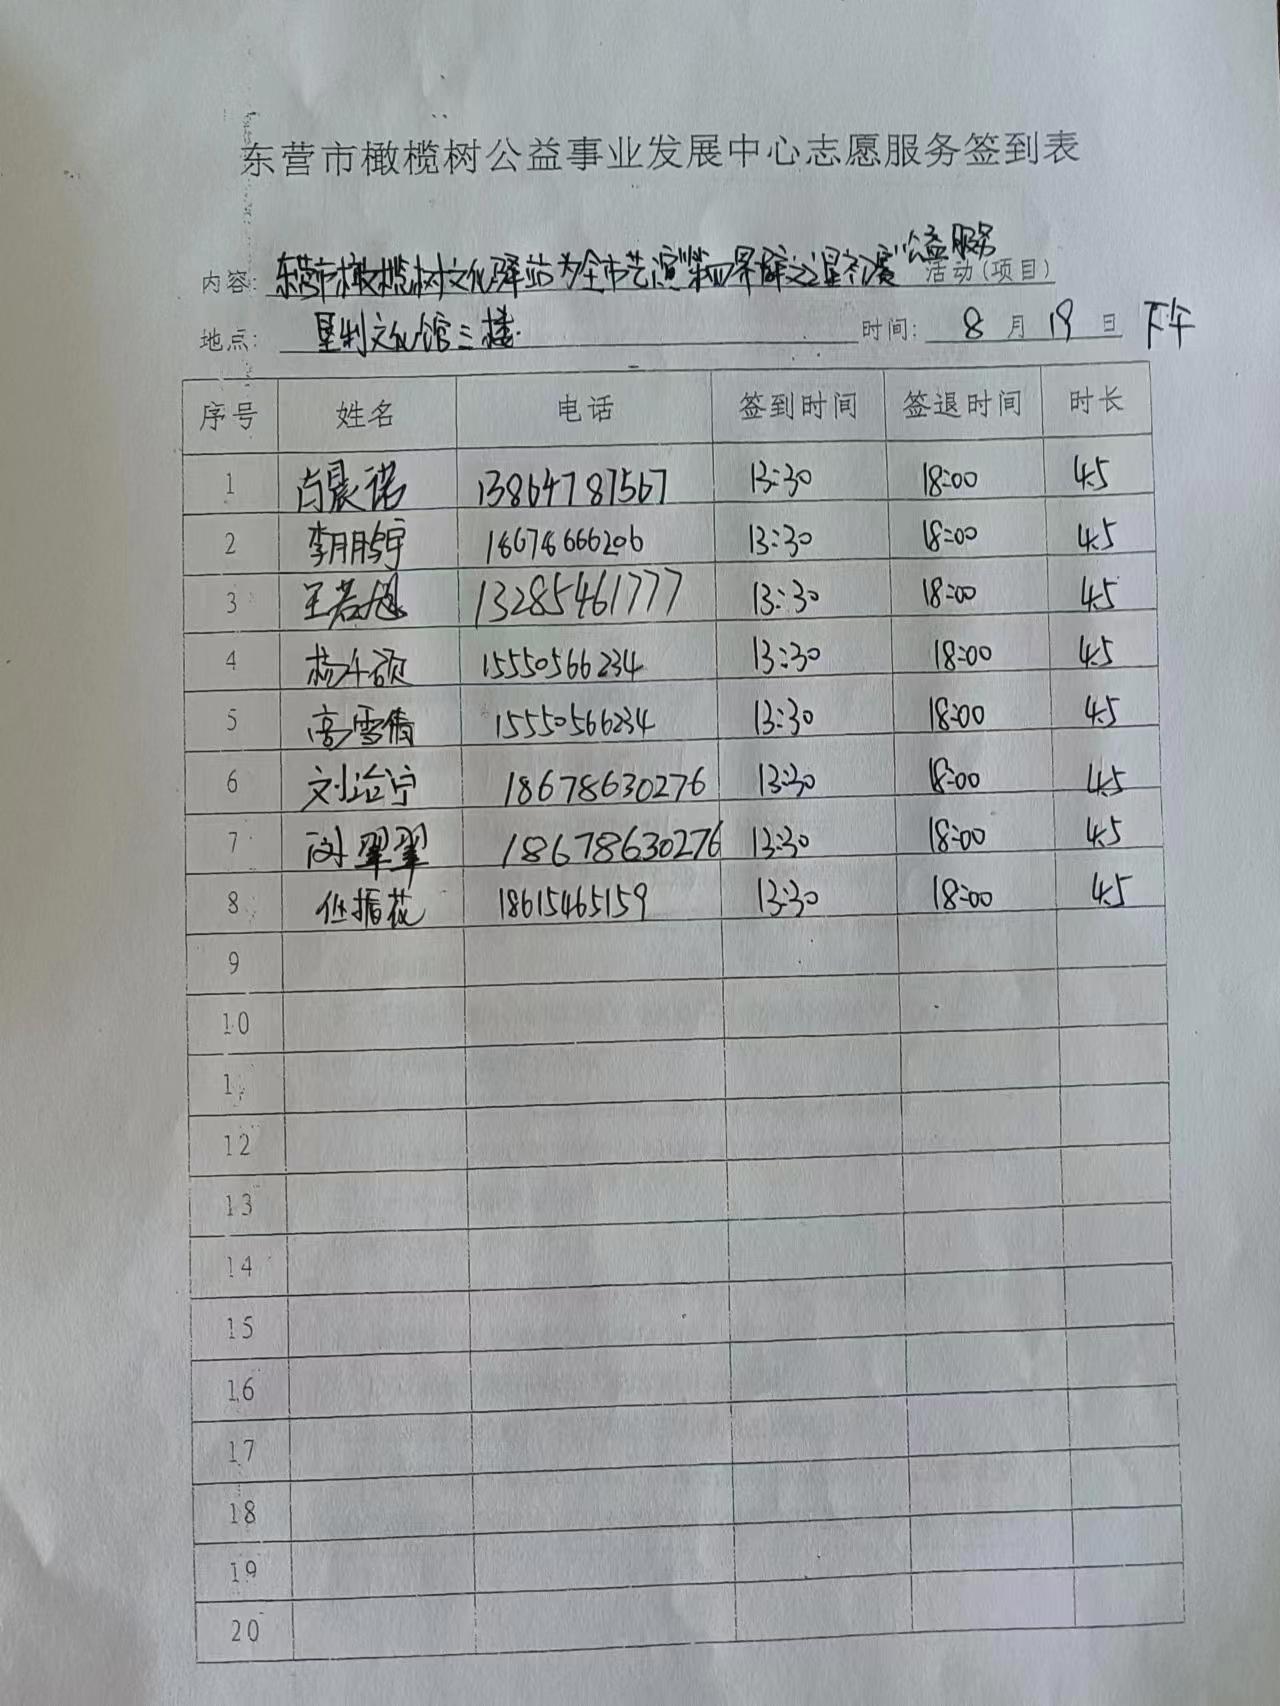 东营市橄榄树公益事业发展中心志愿服务签到表
内容: 东营市橄榄树文化驿站为全市艺演"第四届群文之星初赛"公益服务 活动(项目)
地点: 垦利文化馆三楼 时间: 8月19日 下午
序号 姓名 电话 签到时间 签退时间 时长
1 肖晨诺 13864787567 13:30 18:00 4.5
2 李鹏宇 18678666206 13:30 18:00 4.5
3 王若 13285461777 13:30 18:00 4.5
4 杨千硕 15550566234 13:30 18:00 4.5
5 高雪倩 15550566234 13:30 18:00 4.5
6 刘治宁 18678630276 13:30 18:00 4.5
7 翠翠 18678630276 13:30 18:00 4.5
8 任振花 18615465159 13:30 18:00 4.5
9
10
1
12
13
14
15
16
17
18
19
20